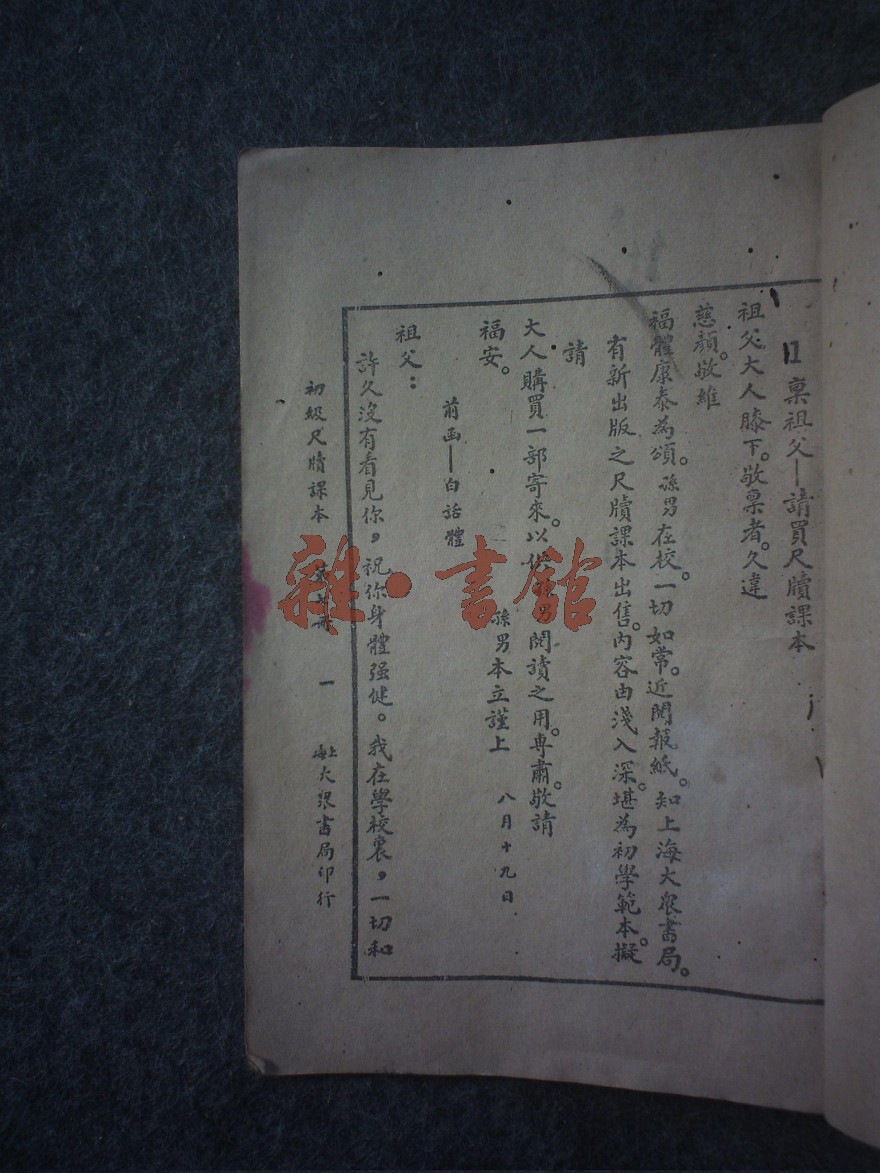 1 稟祖父—請買尺牘課本
祖父大人膝下。敬稟者。久違
慈顏。敬維
福體康泰為頌。孫男在校。一切如常。近閱報紙。知上海大眾書局。
有新出版之尺牘課本出售。內容由淺入深。堪為初學範本。擬
請
大人購買一部寄來。以供孫男閱讀之用。專肅。敬請
福安。
孫男本立謹上 八月十九日
前函—白話體
祖父：
許久沒有看見你，祝你身體强健。我在學校裏，一切和
初級尺牘課本 冊 一 上海大眾書局印行
雜·書館